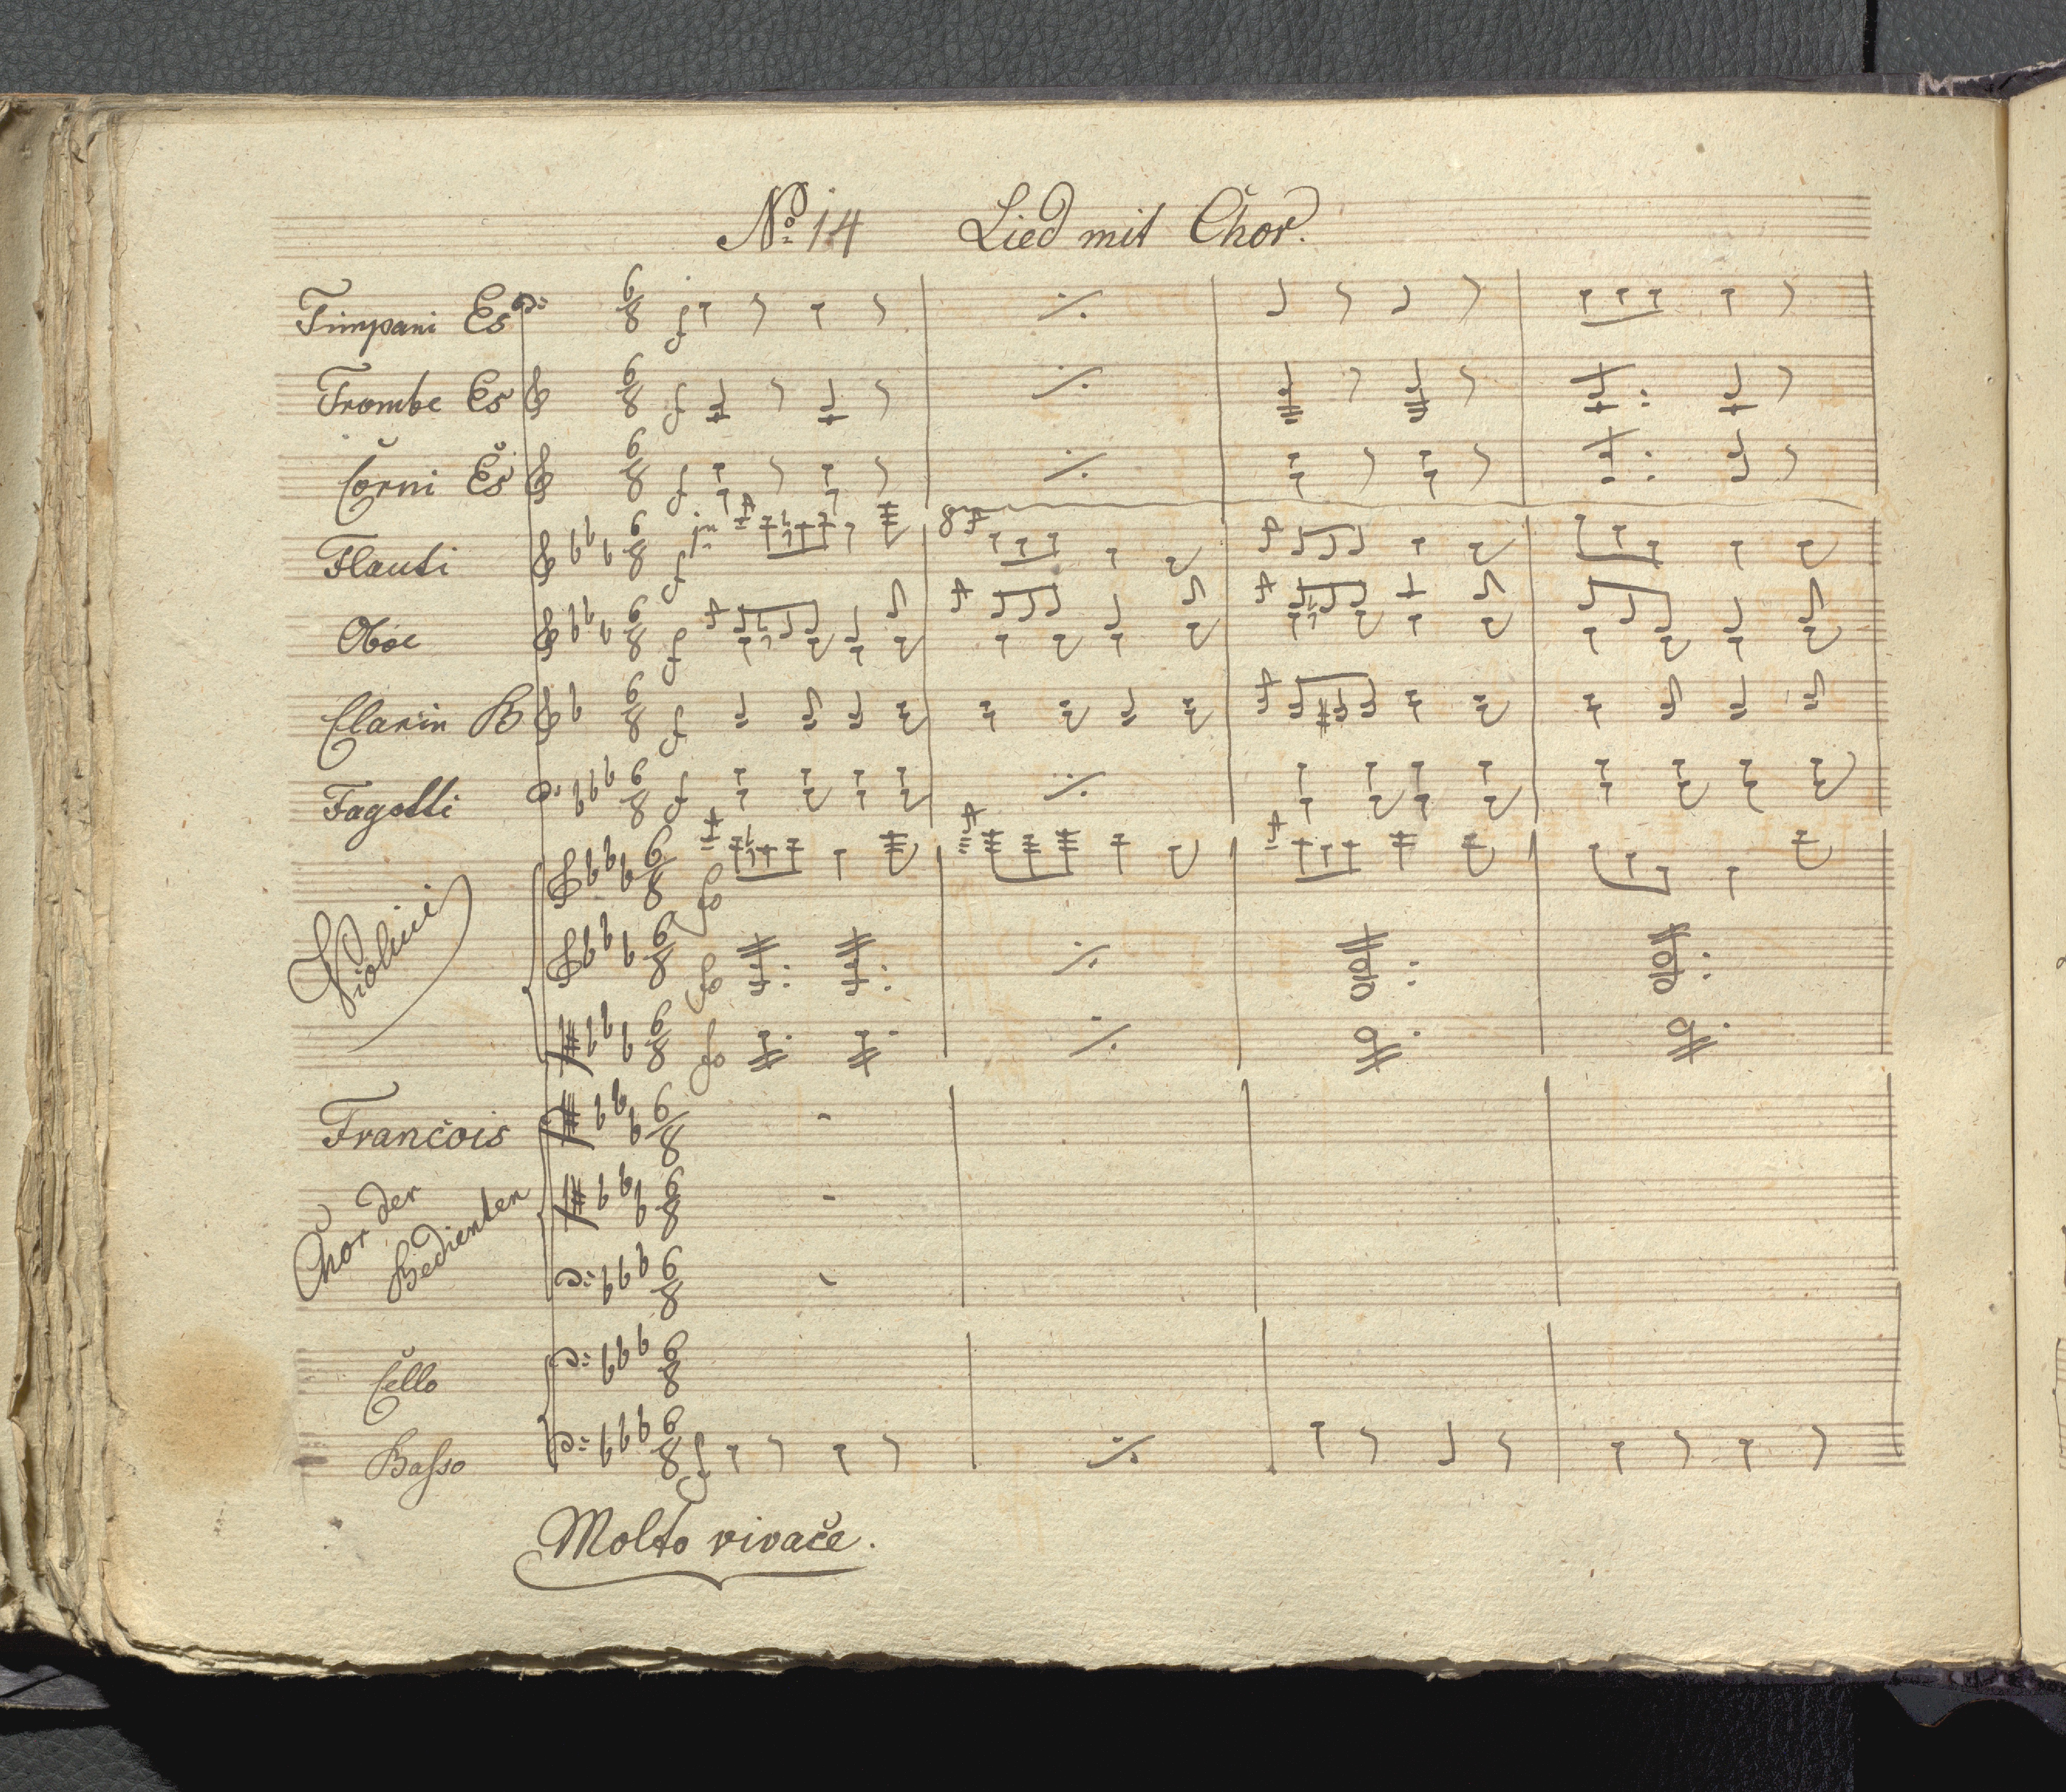 No. 14 Lied mit Chor.
Timpani Es
Trombe Es
Corni Es
Flauti
8
Oboe
Clarin B
Fagotti
Violini
François
Chor der
Bedienten
Cello
Basso
Molto vivace.